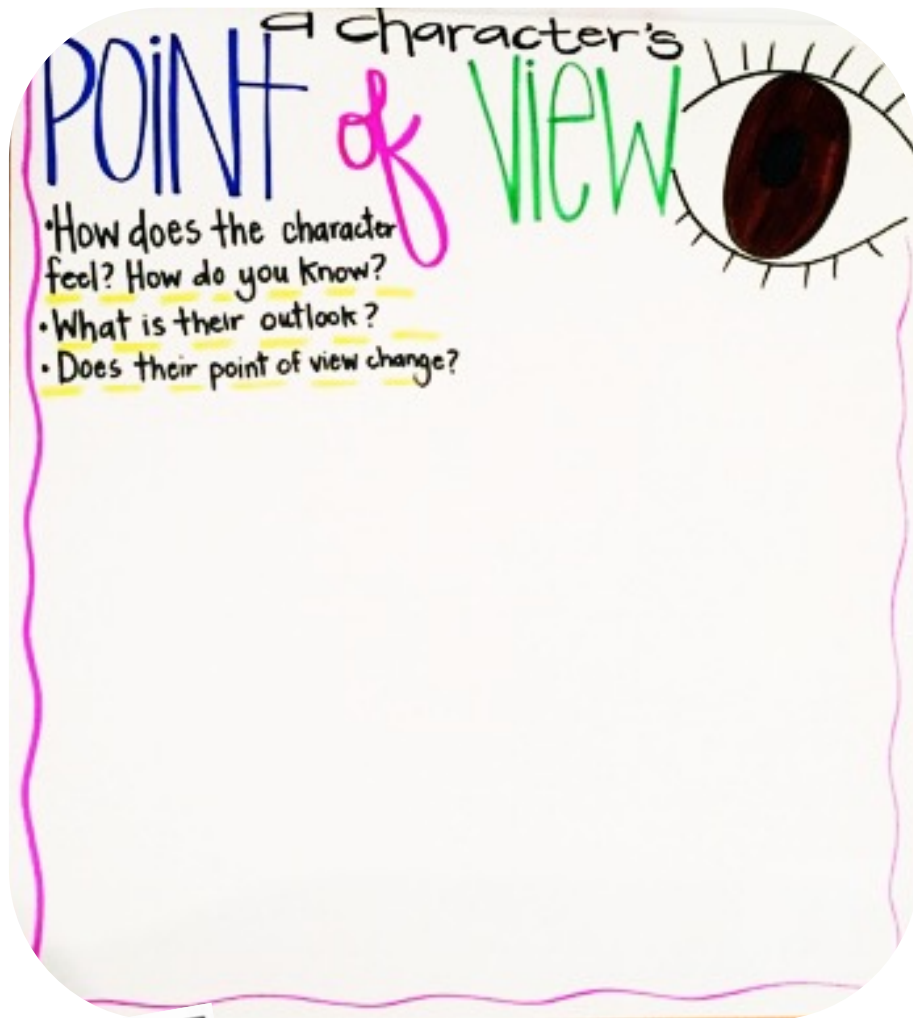 a character's
POINT of VIEW
•How does the character
feel? How do you know?
•What is their outlook?
•Does their point of view change?